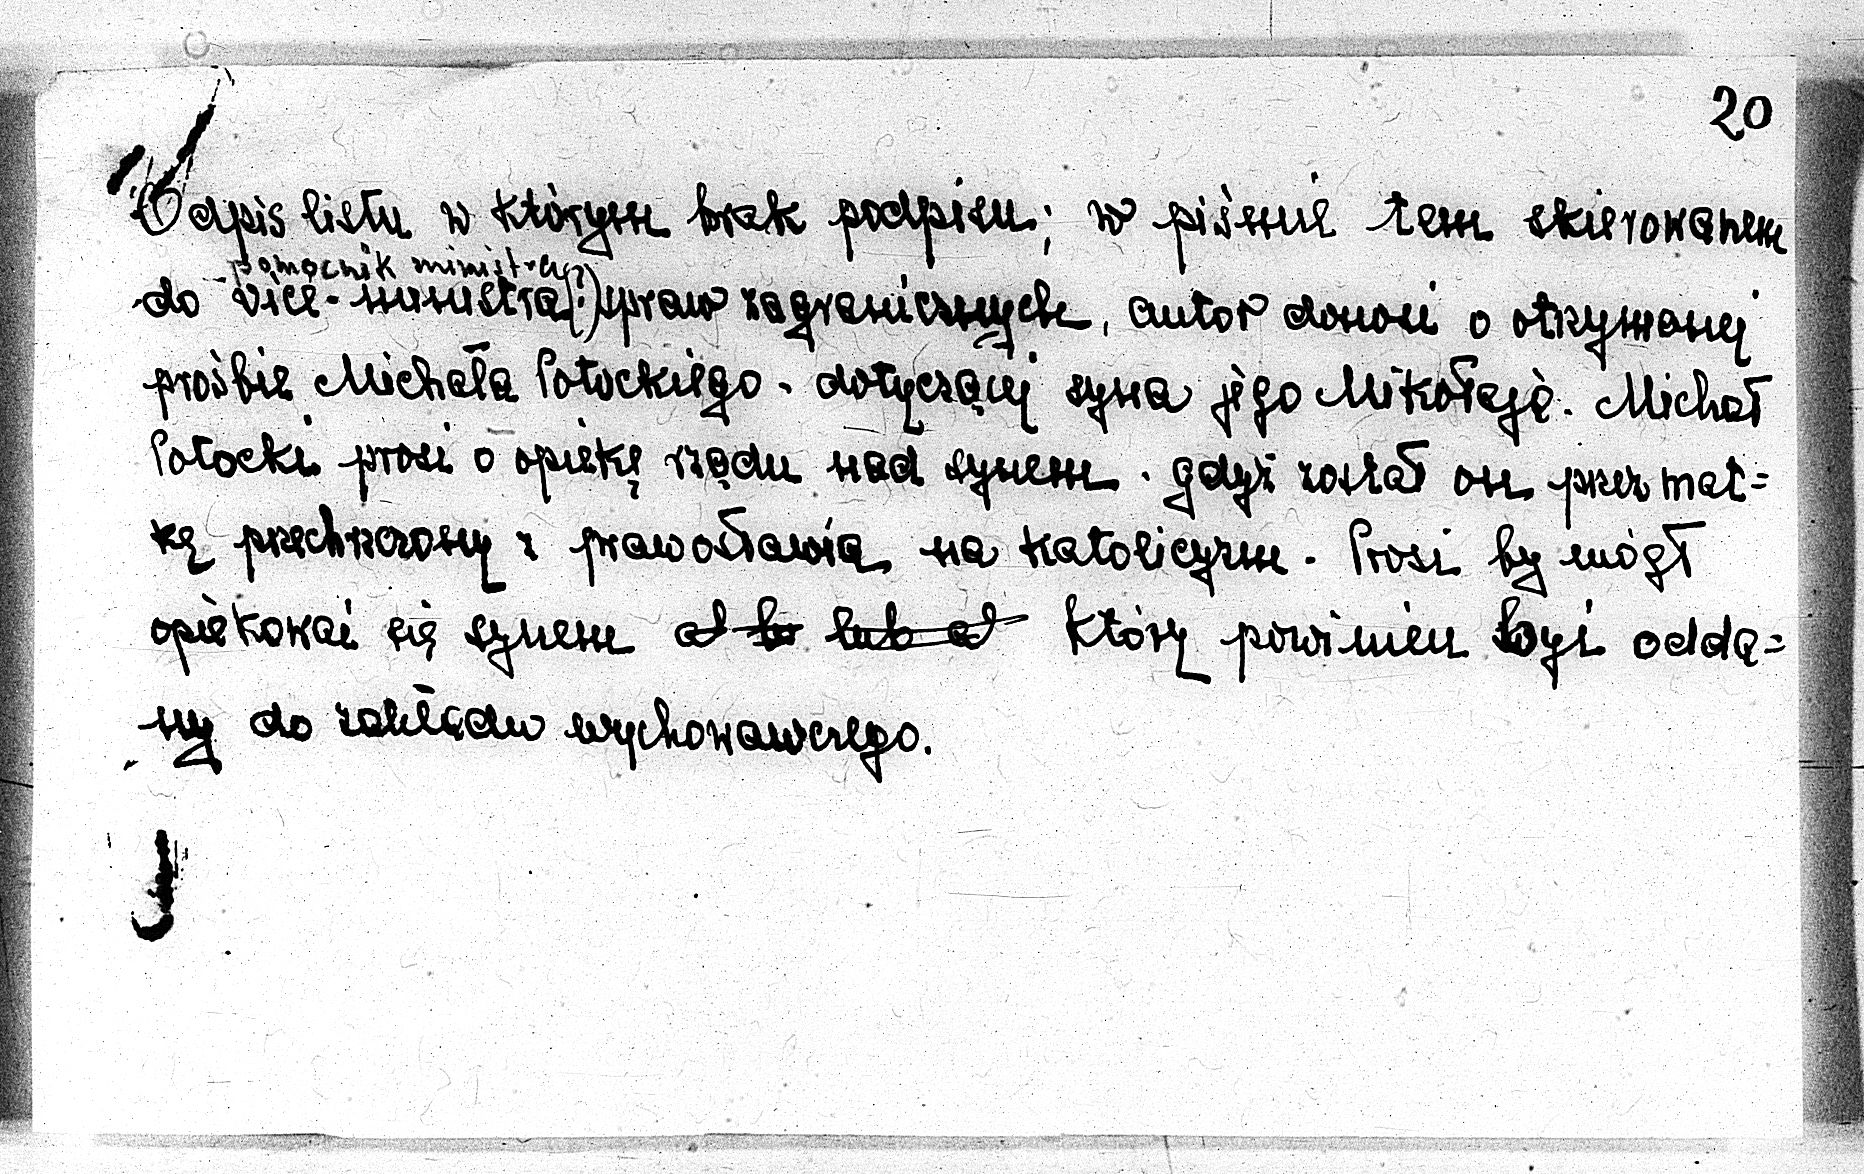 20
Odpis listu w którym brak podpisu; w piśmie tem skierowanem
pomocnik ministra
do vice-ministra(?) spraw zagranicznych, autor donosi o otrzymanej
prośbie Michała Potockiego. dotyczącej syna jego Mikołaja. Michał
Potocki prosi o opiekę rządu nad synem. gdyż został on przez mat=
kę przechrzczony z prawosławia na katolicyzm. Prosi by mógł
opiekować się synem który powinien być odda=
ny do zakładu wychowawczego.